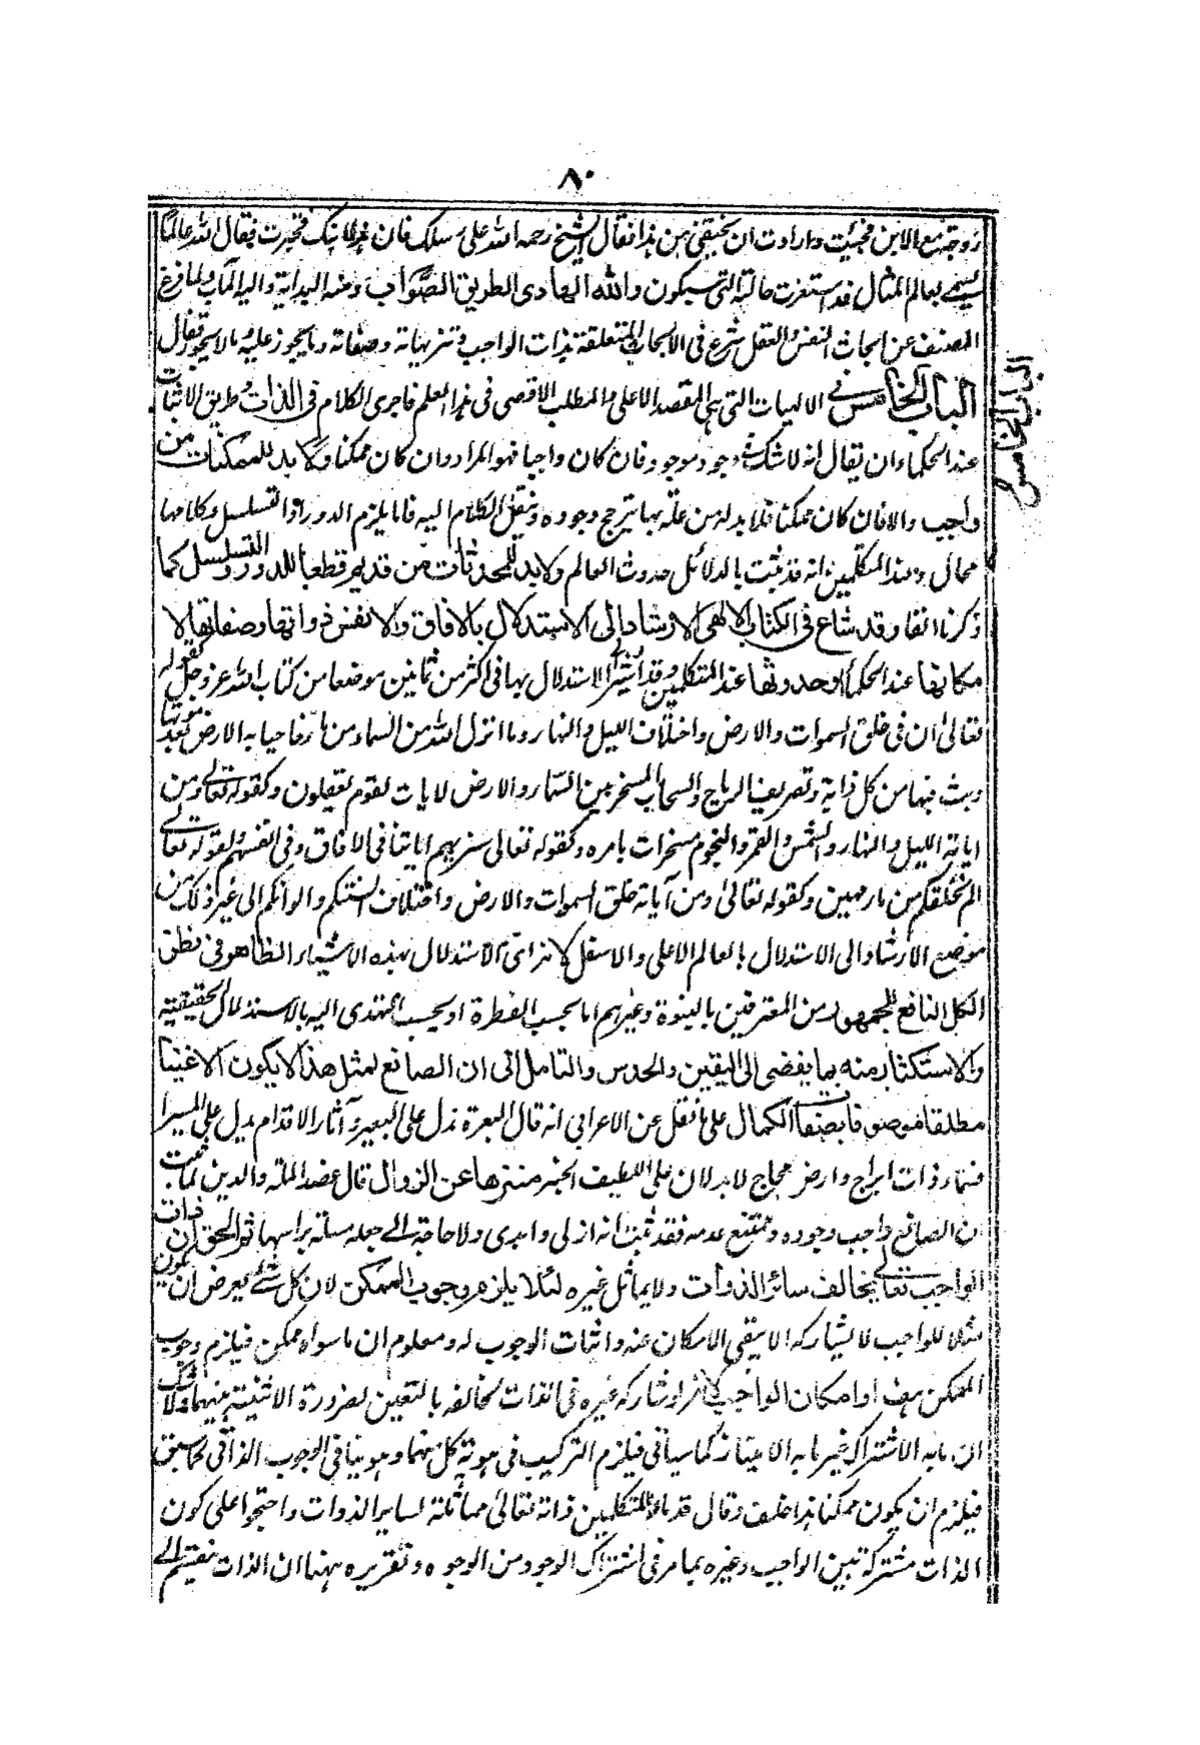 ٨٠
زوجته مع الابن فجئت وارادت ان من هذا فقال الشيخ رحمه الله على سلك فان هذا ابنك فتحيرت فقال ان لله عالما
يسمى بعالم المثال قد استعرت حالته التى سيكون والله الهادى الطريق الصواب ومنه البداية واليه المآب ولما فرغ
المصنف عن ابحاث النفس والعقل شرع فى الابحاث المتعلقة بذات الواجب وتنزيهاته وصفاته وما يجوز عليه وما لا يجوز فقال
الباب الخامس فى الالهيات التى هى المقصد الاعلى والمطلب الاقصى فى هذا العلم فاجرى الكلام فى الذات وطريق الاثبات
عند الحكماء ان يقال انه لا شك فى وجود موجود فان كان واجبا فهو المراد وان كان ممكنا فلا بد للممكنات من
واجب والا فان كان ممكنا فلا بد له من علة بها يترجح وجوده وننقل الكلام اليه فاما يلزم الدور او التسلسل وكلاهما
محال وعند المتكلمين انه قد ثبت بالدلائل حدوث العالم ولا بد للمحدثات من قديم قطعا للدور والتسلسل كما
ذكرنا انفا وقد شاع فى الكتاب الالهى الارشاد الى الاستدلال بالافاق والانفس ذواتها وصفاتها لا
مكانها عند الحكماء او حدوثها عند المتكلمين وقد اشير الى الاستدلال بها فى اكثر من ثمانين موضعا من كتاب الله عز وجل كقوله
تعالى ان فى خلق السموات والارض واختلاف الليل والنهار وما انزل الله من السماء من ماء فاحيا به الارض بعد موتها
وبث فيها من كل دابة وتصريف الرياح والسحاب المسخر بين السماء والارض لايات لقوم يعقلون وكقوله تعالى ومن
اياته الليل والنهار والشمس والقمر والنجوم مسخرات بامره وكقوله تعالى سنريهم اياتنا فى الافاق وفى انفسهم كقوله تعالى
الم نخلقكم من ماء مهين وكقوله تعالى ومن آياته خلق السموات والارض واختلاف السنتكم والوانكم الى غير ذلك من
موضع الارشاد الى الاستدلال بالعالم الاعلى والاسفل لانه اى الاستدلال بهذه الاشياء الظاهر فى نظر
الكل النافع للجمهور من المعترفين بالنبوة وغيرهم اما بحسب الفطرة او بحسب التهدى اليه بالاستدلال الحقيقية
والاستكثار منه بما يفضى الى اليقين والحدس والتامل الى ان الصانع لمثل هذا لا يكون الا غنيا
مطلقا موصوفا بصفات الكمال على ما نقل عن الاعرابى انه قال البعرة تدل على البعير وآثار الاقدام يدل على المسير ا
فسماء ذات ابراج وارض فجاج لا يدلان على اللطيف الخبير منزها عن الزوال قال عضد الملة والدين لما ثبت
ان الصانع واجب وجوده وممتنع عدمه فقد ثبت انه ازلى وابدى ولا حاجة الى جعله مسئلة براسها ثم الحق ان ذات
الواجب تعالى يخالف سائر الذوات ولا يماثل غيره لئلا يلزم وجوب الممكن لان كل شئ يعرض ان يكون
مثلا للواجب لا يشاركه الا يبقى الامكان عنه واثبات الوجوب له ومعلوم ان ما سواه ممكن فيلزم وجوب
الممكن هف او امكان الواجب لانه لو شاركه غيره فى الذات لخالفه بالتعين لضرورة الاثنينية بينهما ولا شك
ان ما به الاشتراك غير ما به الامتياز كما سياتى فيلزم التركيب فى هوية كل منهما وهو ينافى الوجوب الذاتى كما سبق
فيلزم ان يكون ممكنا هذا خلف وقال قدماء المتكلمين ذاته تعالى مماثلة لساير الذوات واحتجوا على كون
الذات مشتركة بين الواجب وغيره بما مر فى اشتراك الوجود من الوجوه وتقريره ههنا ان الذات ينقسم الى